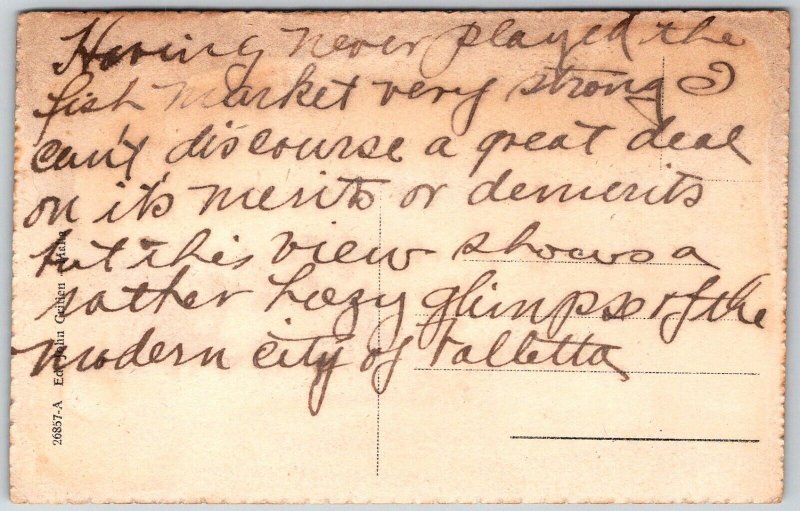 Having never played the
fish market very strong
can't discourse a great deal
on its merits or demerits
but this view shows a
rather hazy glimpse of the
modern city of Valletta
26857-A Ed. John